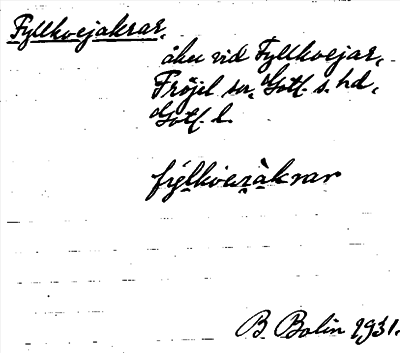 Fyllkvejakrar,
åker vid Fyllkvejar,
Fröjel sn, Gotl. s. hd,
Gotl. l.
fýlkveràkrar
B. Bolin 1931.